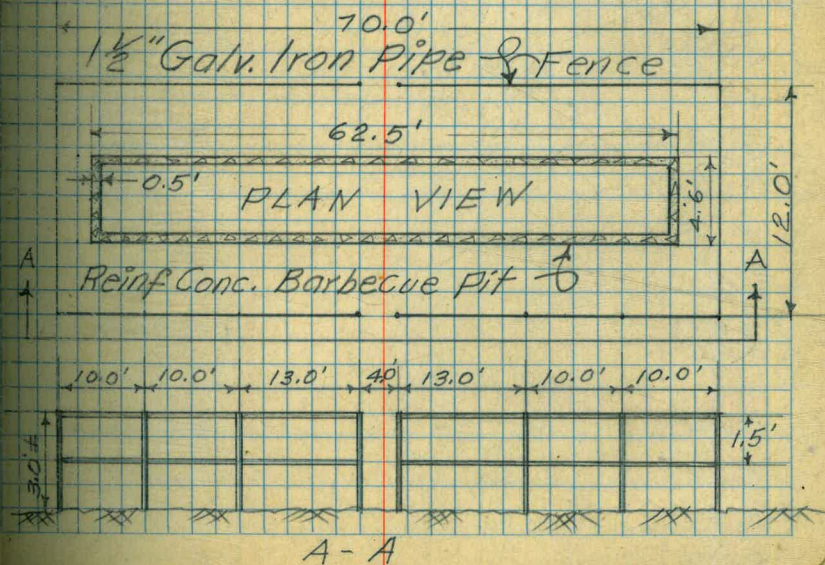 70.0'
1 1/2" Galv. Iron Pipe Fence
62.5'
0.5'
PLAN VIEW
4.6'
12.0'
A
A
Reinf Conc. Barbecue Pit
10.0' 10.0' 13.0' 4.0' 13.0' 10.0' 10.0'
3.0'±
1.5'
A-A